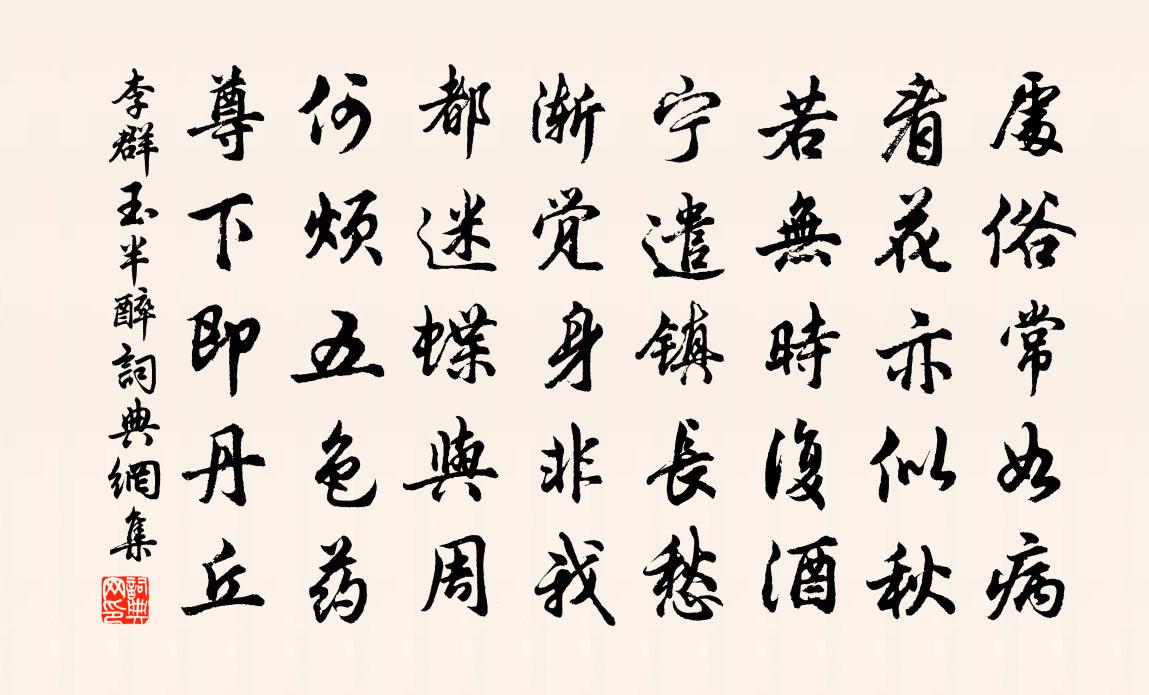 處俗常如病
看花亦似秋
若無時復酒
宁遣镇長愁
渐觉身非我
都迷蝶與周
何烦五色药
尊下即丹丘
李群玉半醉詞典網集
詞典网印